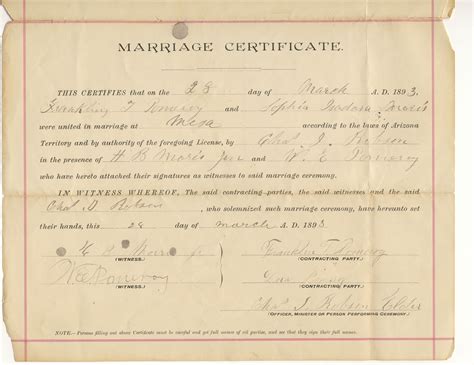 MARRIAGE CERTIFICATE.
THIS CERTIFIES that on the 28 day of March A. D. 1893,
Franklin T Pomeroy and Sophia Isadora Morris
were united in marriage at Mesa according to the laws of Arizona
Territory and by authority of the foregoing License, by Chas. I. Robson
in the presence of H B Morris Jun and W. E. Pomeroy
who have hereto attached their signatures as witnesses to said marriage ceremony.
IN WITNESS WHEREOF, The said contracting parties, the said witnesses and the said
Chas I. Robson, who solemnized such marriage ceremony, have hereunto set
their hands, this 28 day of march A. D. 1893
Morris Jr Franklin T Pomeroy
(WITNESS.) (CONTRACTING PARTY.)
W E Pomeroy
(WITNESS.) (CONTRACTING PARTY.)
Chas I. Robson Elder
(OFFICER, MINISTER OR PERSON PERFORMING CEREMONY.)
NOTE.—Persons filling out above Certificate must be careful and get full names of all parties, and see that they sign their full names.